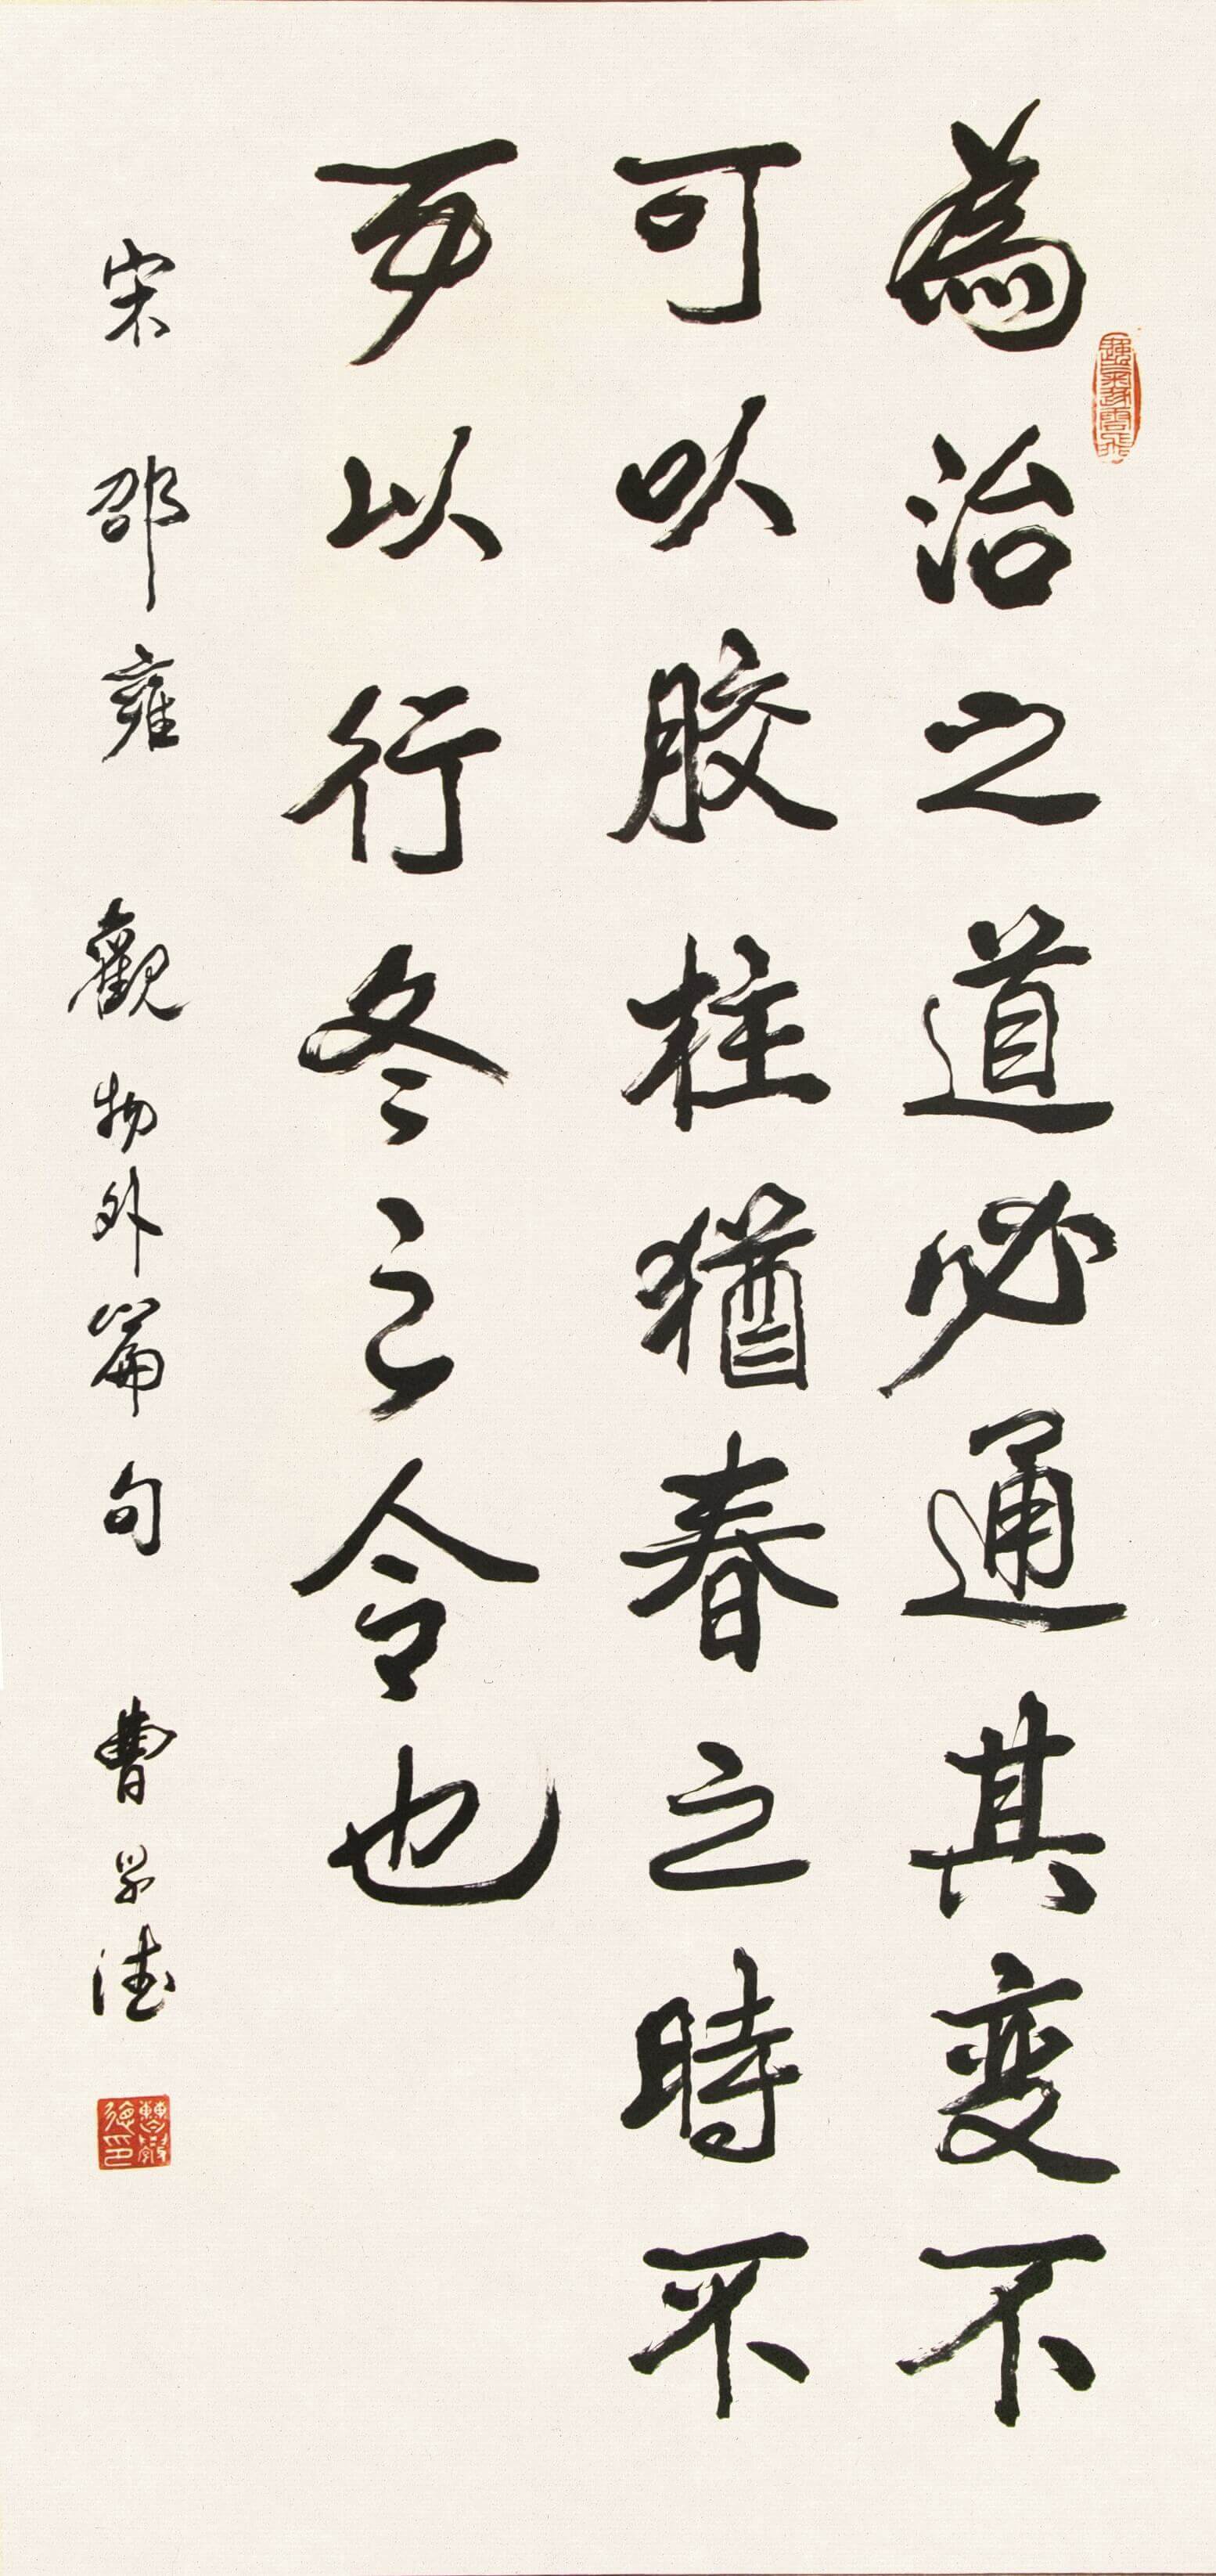 為治之道必通其变不
可以胶柱猶春之時不
可以行冬之令也
宋 邵雍 觀物外篇句 曹